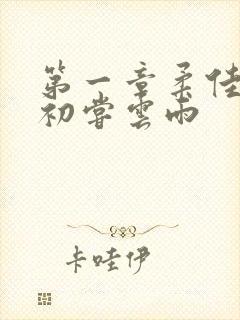 第一章柔佳
初嘗雲雨
卡哇伊